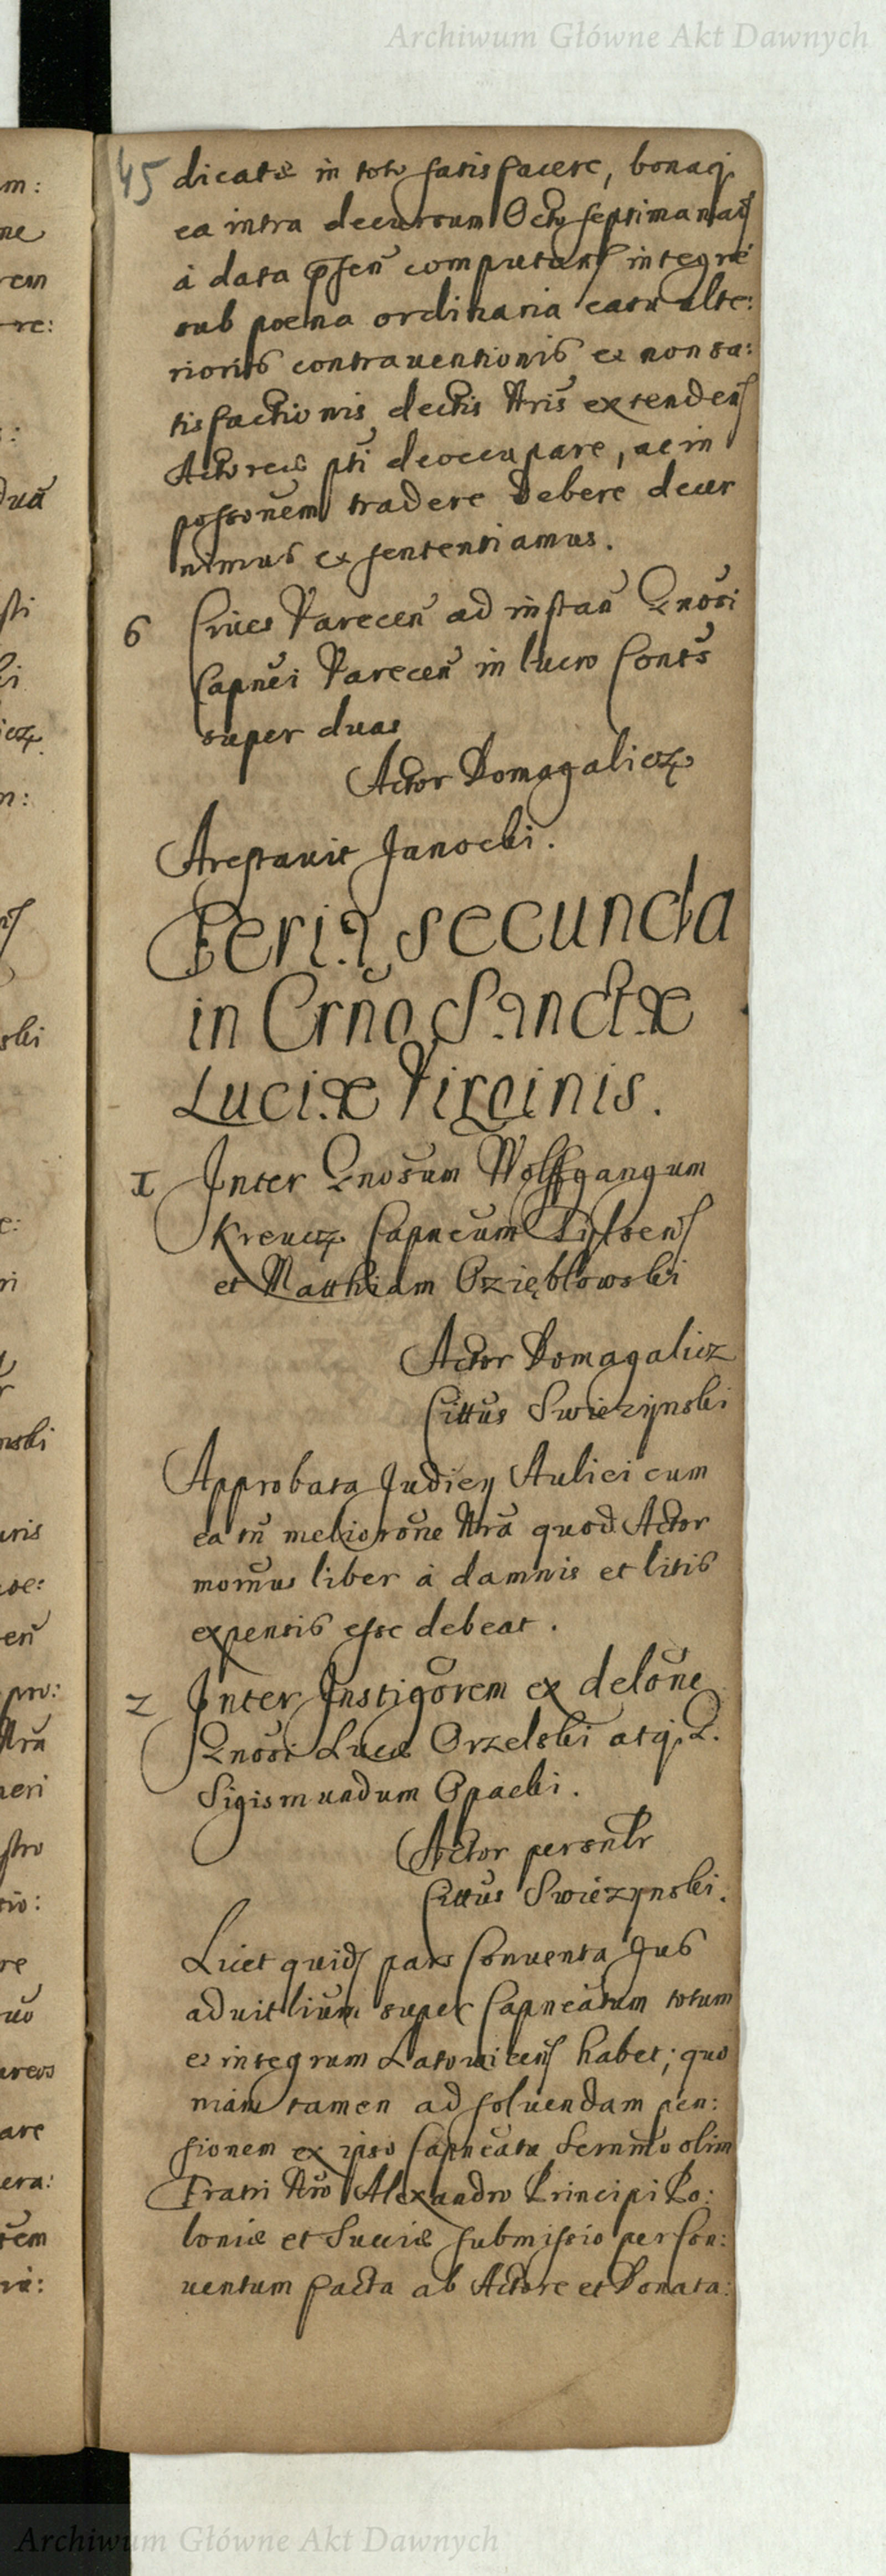 Archiwum Główne Akt Dawnych
45 dicatæ in toto satisfacere, bonaq̃
ea intra decursum Octo septimanaꝝ
à data p̃sen̄ computanꝭ integrè
sub poena ordinaria casu ulte:
rioris contrauentionis et non sa:
tisfactionis dectis Nris̄ extendenꝭ
Actoreis pti deoccupare, ac in
possonēm tradere Debere decer
nimus et sententiamus.
6 Ciues Varecen̄ ad instan̄ Gnosi
Capnei Varecen̄ in lucro Conts̄
super duas
Actor Domagalicz
Arestauit Janocki.
Feria secunda
in Crño Sanctæ
Luciæ Virginis.
1 Inter Gnosum Wolffgangum
Kreucz Capneum
et Matthiam Oziębłowski
Actor Domagalicz
Cittus Swiezynski
Approbata Judicy Aulici cum
ea tñ meliorōne Nrā quod Actor
liber à damnis et litis
expensis esse debeat.
2 Inter Instigōrem ex delōne
Gnosi Lucæ Orzelski atq̃ G.
Sigismundum Opacki.
Actor personlr
Cittus Swiezynski.
Licet quidꝭ pars Conuenta Jus
aduitlium super Capneatum totum
et integrum Latouicenꝭ habet; quo
niam tamen ad soluendam pen:
sionem ex ipso Capneatu Sernmo olim
Fratri Nro Alexandro Principi Po:
loniæ et Sueciæ submissio per Con:
uentum facta ab Actore et Donata:
Archiwum Główne Akt Dawnych